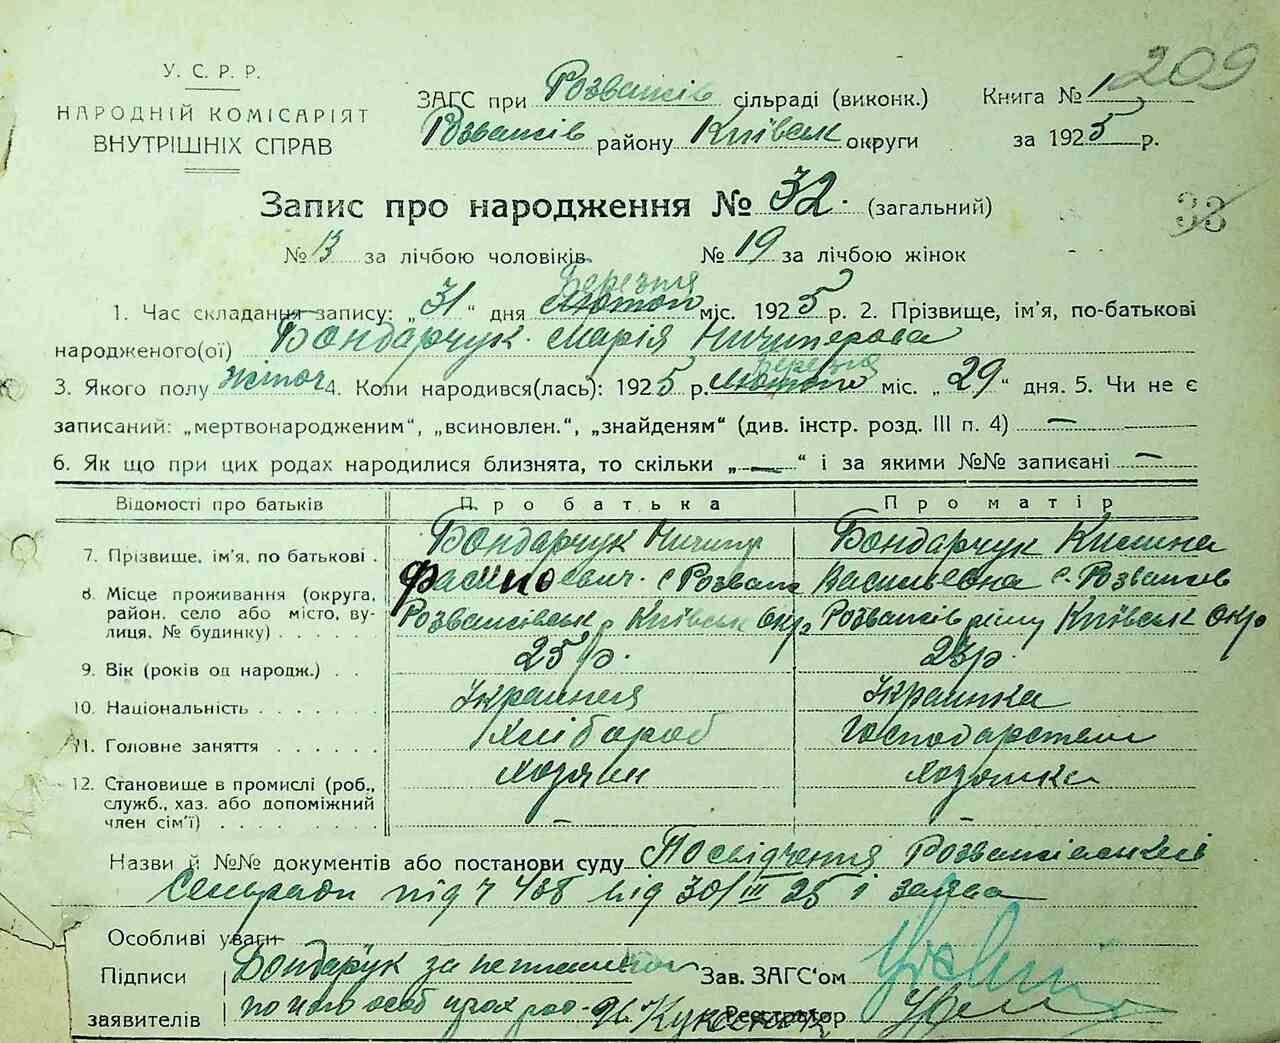 У. С. Р. Р.
НАРОДНІЙ КОМІСАРІЯТ
ВНУТРІШНІХ СПРАВ
ЗАГС при Розважів сільраді (виконк.) Книга № 1 209
Розважів району Київськ округи за 1925 р.
Запис про народження № 32. (загальний) 33
№ 13 за лічбою чоловіків № 19 за лічбою жінок
березня
1. Час складання запису: „31“ дня лютого міс. 1925 р. 2. Прізвище, ім'я, по-батькові
народженого(ої) Бондарчук Марія Ничипорова
березня
3. Якого полу жіноч 4. Коли народився(лась): 1925 р. лютого міс. „29“ дня. 5. Чи не є
записаний: „мертвонародженим“, „всиновлен.“, „знайденям“ (див. інстр. розд. III п. 4) —
6. Як що при цих родах народилися близнята, то скільки „—“ і за якими №№ записані —
Відомості про батьків Про батька Про матір
7. Прізвище, ім'я, по батькові . Бондарчук Ничипір Бондарчук
8. Місце проживання (округа, с Розваж Васильевна с. Розважев
район, село або місто, ву- Розважівськ р Київськ окр Розважів Київськ окр
лиця, № будинку) . . . . .
9. Вік (років од народж.) . . 25 р. 23 р.
10. Національність . . . . . . Україннця Українка
11. Головне заняття . . . . . . Хлібороб Господарством
12. Становище в промислі (роб., Хозяин Хозяйка
служб., хаз. або допоміжний
член сім'ї) . . . . . . . . — —
Назви й №№ документів або постанови суду Посвідчення Розважівської
Сельради під ч 408 від 30/III 25 і заява
Особливі уваги
Підписи Бондарчук за неписьмен Зав. ЗАГС'ом
заявителів по його особ прох Реєстратор